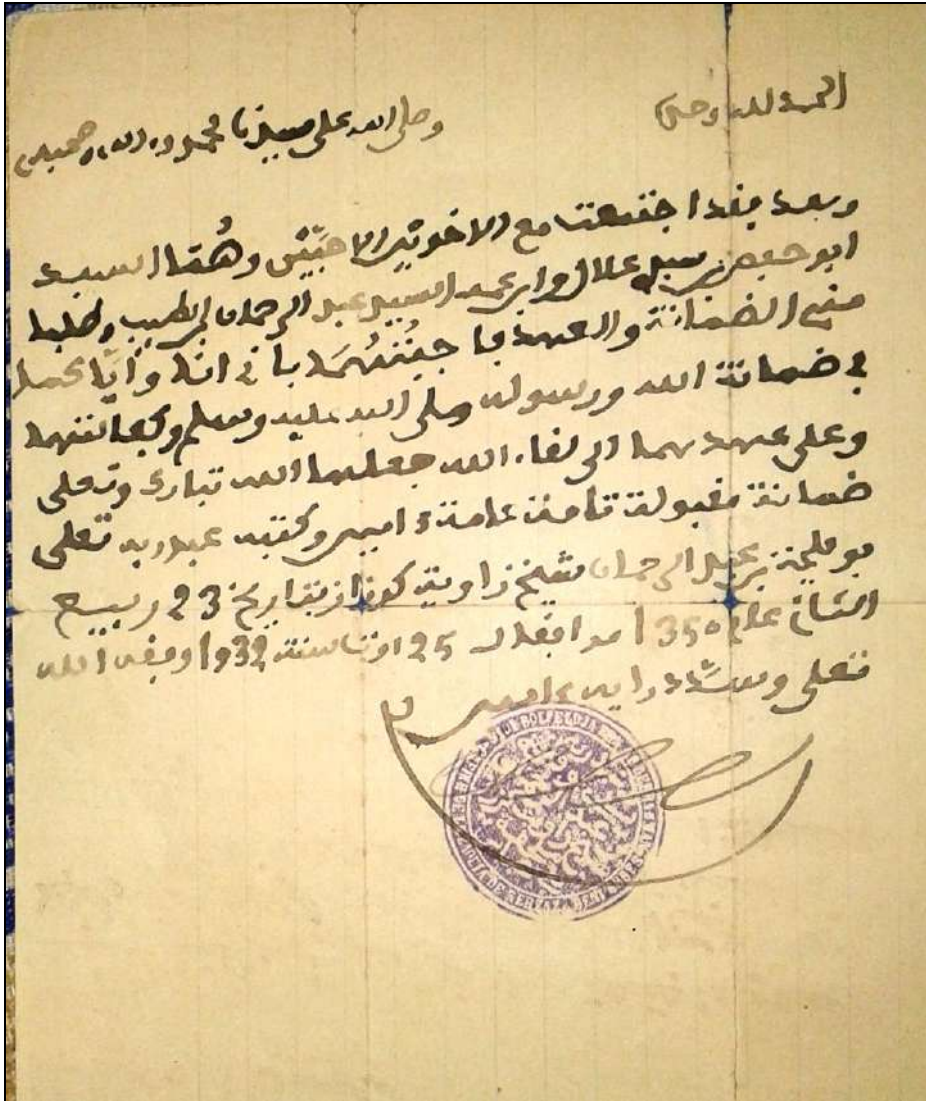 الحمد لله وحده وصلى الله على سيدنا محمد وءاله وصحبه
وبعد فقد اجتمعت مع الاخوين الاحبّين وهُمَا السيد
ابو حفص بن سيد علال وابن عمه السيد عبد الرحمان بن الطيب وطلبا
مني الضمانة والعهد فاجبتُهُمَا باني انا وايّاهما
في ضمانة الله ورسوله صلى الله عليه وسلم
وعلى عهدهما الى لقاء الله جعلها الله تبارك وتعلى
ضمانة مقبولة تامة عامة ءامين وكتبه عبد ربه تعلى
بن عبد الرحمان شيخ زاوية بتاريخ 23 ربيع
الثاني عام 1350 سنة 1932 وفقه الله
تعلى وسدّد رايه ءامين